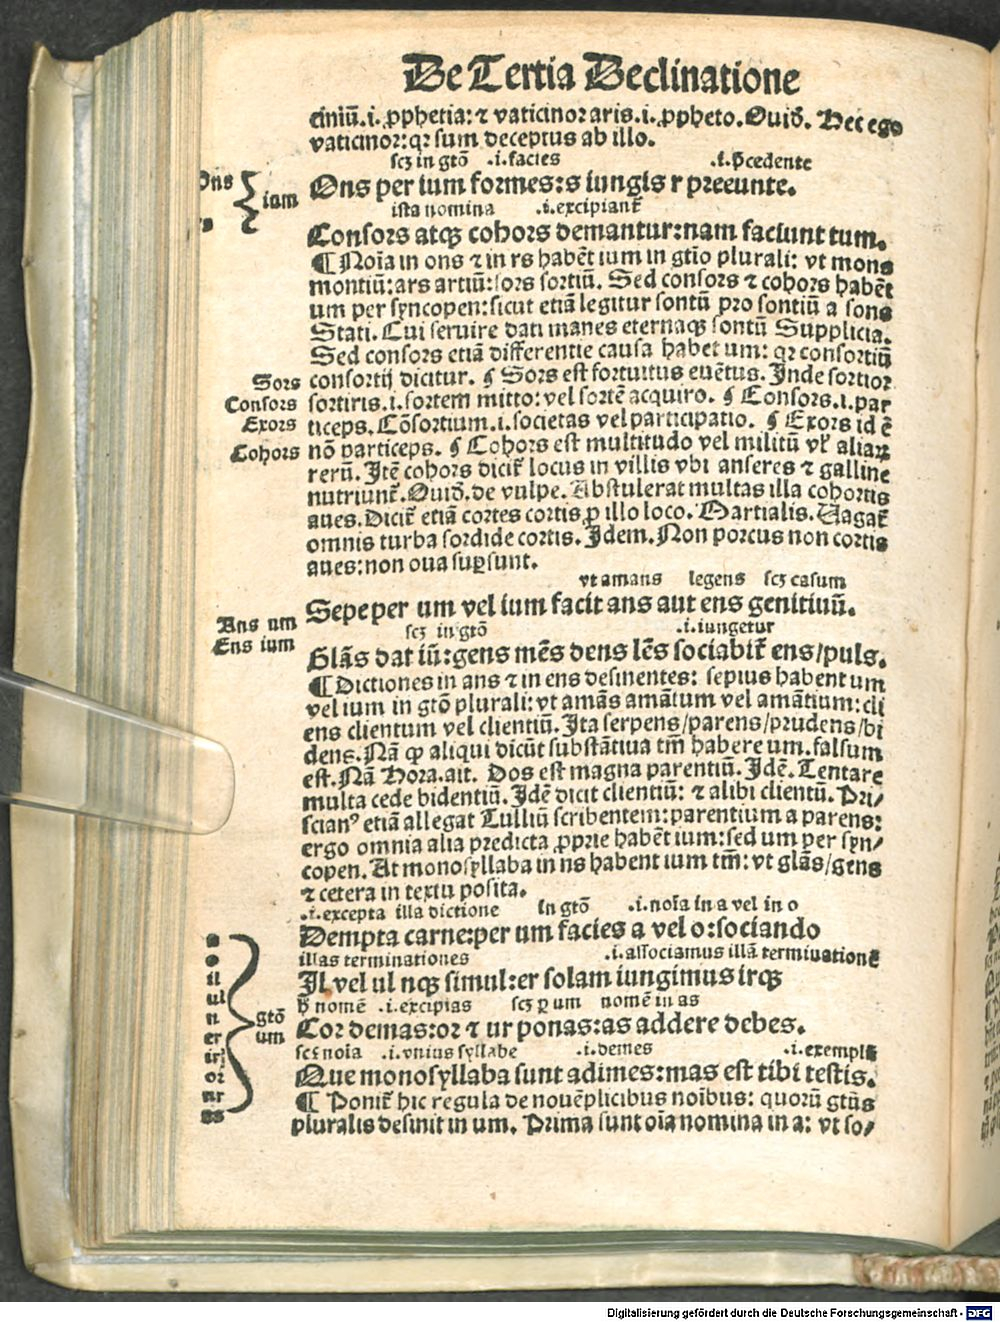 De Tertia Declinatione
ciniū.i.ꝓphetia: ⁊ vaticinor aris.i.ꝓpheto.Ouid̄. Nec ego
vaticinor: qꝛ sum deceptus ab illo.
scꝫ in gtō .i.facies .i.p̄cedente
Ons per ium formes: s iungis r preeunte.
Ons
rs
ium
ista nomina .i.excipiunt̄
Consors atqꝫ cohors demantur: nam faciunt tum.
¶ Noīa in ons ⁊ in rs habēt ium in gtīo plurali: vt mons
montiū: ars artiū: sors sortiū. Sed consors ⁊ cohors habēt
um per syncopen: sicut etiā legitur sontū pro sontiū a sons
Stati. Cui seruire dati manes eternaqꝫ sontū Supplicia.
Sed consors etiā differentie causa habet um: qꝛ consortiū
Sors consortij dicitur. ¶ Sors est fortuitus euētus. Inde sortior
Consors sortiris.i.sortem mitto: vel sortē acquiro. ¶ Consors.i.par
Exors ticeps. Cōsortium.i.societas vel participatio. ¶ Exors id ē
Cohors nō particeps. ¶ Cohors est multitudo vel militū vl̄ aliaꝝ
rerū. Itē cohors dicit̄ locus in villis vbi anseres ⁊ galline
nutriunt̄. Ouid̄. de vulpe. Abstulerat multas illa cohortis
aues. Dicit̄ etiā cortes cortis ꝓ illo loco. Martialis. Uagat̄
omnis turba sordide cortis. Idem. Non porcus non cortis
aues: non oua suꝑsunt.
vt amans legens scꝫ casum
Sepe per um vel ium facit ans aut ens genitiuū.
Ans um
Ens ium
scꝫ in gtō .i.iungetur
Glās dat iū: gens mēs dens lēs sociabit̄ ens/puls.
¶ Dictiones in ans ⁊ in ens desinentes: sepius habent um
vel ium in gtō plurali: vt amās amātum vel amātium: cli
ens clientum vel clientiū. Ita serpens/parens/prudens/bi
dens. Nā ꝙ aliqui dicūt substātiua tm̄ habere um. falsum
est. Nā Hora. ait. Dos est magna parentiū. Idē. Tentare
multa cede bidentiū. Idē dicit clientiū: ⁊ alibi clientū. Pri/
scianꝰ etiā allegat Tulliū scribentem: parentium a parens:
ergo omnia alia predicta ꝓprie habēt ium: sed um per syn/
copen. At monosyllaba in ns habent ium tm̄: vt glās/gens
⁊ cetera in textu posita.
.i.excepta illa dictione in gtō .i.noīa in a vel in o
Dempta carne: per um facies a vel o: sociando
illas terminationes .i.associamus illā terminationē
Il vel ul nqꝫ simul: er solam iungimus irqꝫ
h̄ nomē .i.excipias scꝫ ꝑ um nomē in as
Cor demas: or ⁊ ur ponas: as addere debes.
scꝫ noīa .i.vnius syllabe .i.demes .i.exemplū
Que monosyllaba sunt adimes: mas est tibi testis.
a
o
il
ul
n
er
ir
or
ur
as
gtō
um
¶ Ponit̄ hic regula de nouēplicibus noībus: quorū gtūs
pluralis desinit in um. Prima sunt oīa nomina in a: vt so/
Digitalisierung gefördert durch die Deutsche Forschungsgemeinschaft - DFG